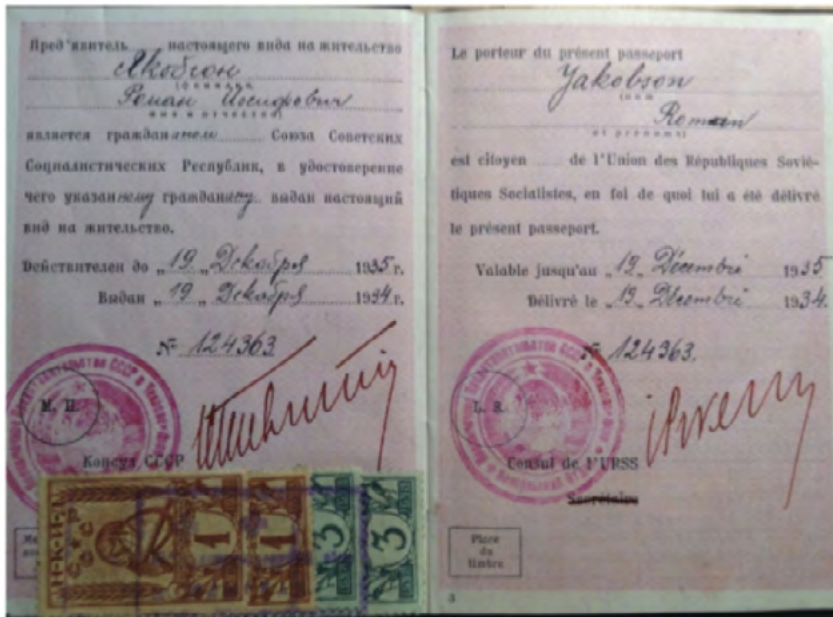 Пред'явитель настоящего вида на жительство
Якобсон
(фамилия)
Роман Иосифович
имя и отчество)
является гражданином Союза Советских
Социалистических Республик, в удостоверение
чего указанному гражданину выдан настоящий
вид на жительство.
Действителен до „19„ Декабря 1935 г.
Выдан „19„ Декабря 1934 г.
№ 124363
М. П.
Консул СССР
Н•К•И•Д
1
1
3
3
Le porteur du présent passeport
Yakobson
(nom
Romain
et prénoms)
est citoyen de l'Union des Républiques Sovié-
tiques Socialistes, en foi de quoi lui a été délivré
le présent passeport.
Valable jusqu'au „19„ Décembre 1935
Délivré le „19„ Décembre 1934.
№ 124363.
L. S.
Consul de l'URSS
Secrétaire
Place
du
timbre
3